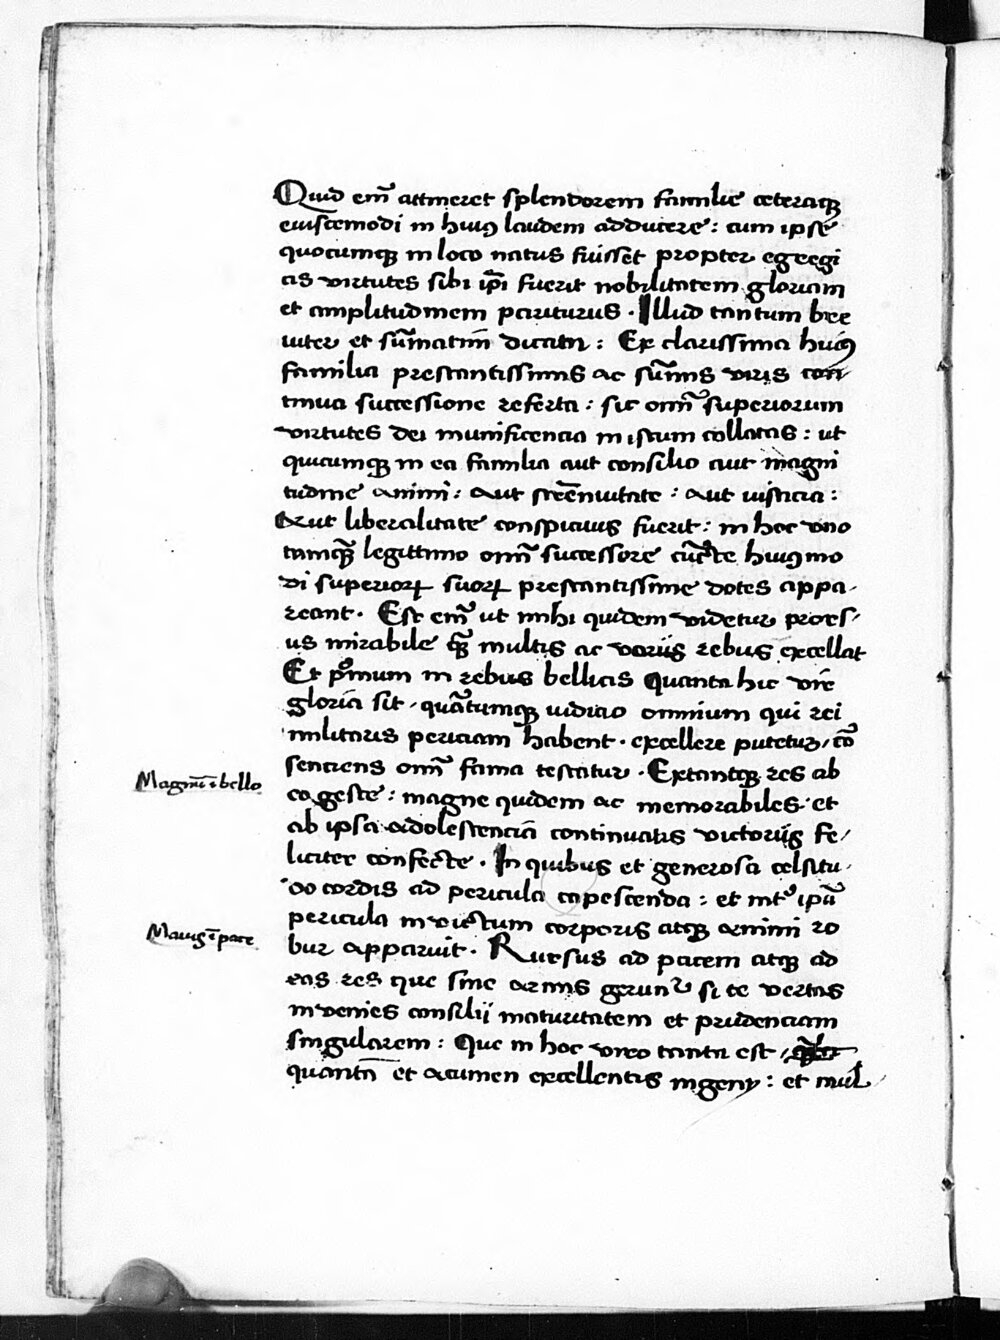 Quid em̄ attineret splendorem familie ceterasq̨
eiuscemodi in huiꝰ laudem adducere : cum ipse
quocumq̨ in loco natus fuisset propter egregi
as virtutes sibi ip̄i fuerit nobilitatem gloriam
et amplitudinem pariturus . Illud tantum bre
uiter et sūmatim dicatr : Ex clarissima huiꝰ
familia prestantissimis ac sūmis viris con
tinua successione referta : sic omī superiorum
virtutes dei munificencia in istum collatas : ut
quicumq̨ in ea familia aut consilio aut magni
tudine animi : Aut strēnuitate : Aut iusticia :
Aut liberalitate conspicuus fuerit : in hoc vno
tamq̨̄ legittimo omī successore cūcte huiꝰmo
di superioꝝ suoꝝ prestantissime dotes appa-
reant . Est em̄ ut mihi quidem videtur prors/
us mirabile q̨̄ multis ac variis rebus excellat
Et pͥmum in rebus bellicis Quanta hic vire
gloria sit , quātumq̨ iudicio omnium qui rei
militaris periciam habent . excellere putetur, cō
senciens omī fama testatur . Extantq̨ res ab
eo geste : magne quidem ac memorabiles et
ab ipsa adolescenciā continuatis victoriis fe/
liciter confecte . In quibus et generosa celsitu
do cordis ad pericula capescenda : et int͛ ipā
pericula inuictum corporis atq̨ animi ro
bur apparuit . Rursus ad pacem atq̨ ad
eas res que sine armis gerunt᷑ si te vertas
inuenies consilij maturitatem et prudenciam
singularem : Que in hoc viro tanta est ,
quantā et acumen excellentis ingeny : et mul
Magnꝰ ī bello
Magꝰ ī pace